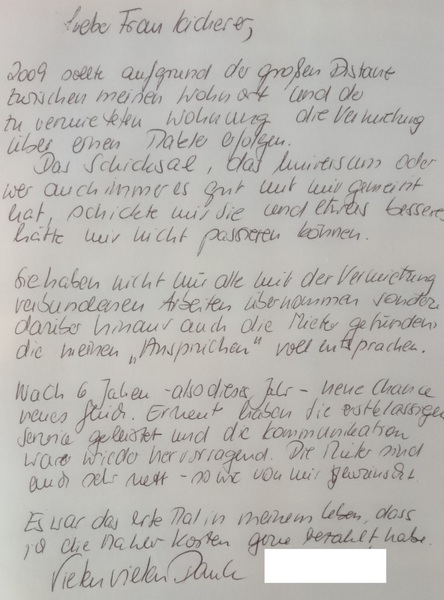 Liebe Frau Bicherer,
2009 sollte aufgrund der großen Distanz
zwischen meinem Wohnort und der
zu vermietenden Wohnung die Vermietung
über einen Makler erfolgen.
Das Schicksal, das Universum oder
wer auch immer es gut mit mir gemeint
hat, schickte mir Sie und etwas besseres
hätte mir nicht passieren können.
Sie haben nicht nur alle mit der Vermietung
verbundenen Arbeiten übernommen sondern
darüber hinaus auch die Mieter gefunden
die meinen „Ansprüchen“ voll entsprachen.
Nach 6 Jahren - also dieses Jahr - neue Chance
neues Glück. Erneut haben Sie erstklassigen
Service geleistet und die Kommunikation
war wieder hervorragend. Die Mieter sind
auch sehr nett - so wie von mir gewünscht
Es war das erste Mal in meinem Leben, dass
ich die Makler Kosten gerne bezahlt habe.
Vielen vielen Dank